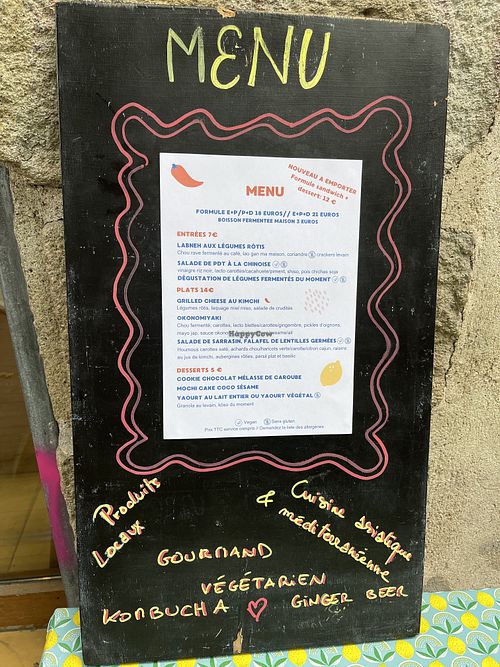 MENU
NOUVEAU A EMPORTER
Formule sandwich +
dessert: 12 €
MENU
FORMULE E+P/P+D 18 EUROS// E+P+D 21 EUROS
BOISSON FERMENTEE MAISON 3 EUROS
ENTRÉES 7€
LABNEH AUX LÉGUMES RÔTIS
Chou rave fermenté au café, lao gan ma maison, coriandre crackers levain
SALADE DE PDT À LA CHINOISE
vinaigre riz noir, lacto carottes/cacahuete/piment, shiso, pois chiches soja
DÉGUSTATION DE LÉGUMES FERMENTÉS DU MOMENT
PLATS 14€
GRILLED CHEESE AU KIMCHI
Légumes rôtis, laquage miel miso, salade de crudités
OKONOMIYAKI
Chou fermenté, carottes, lacto blettes/carottes/gingembre, pickles d'oignons,
mayo jap, sauce okono
HappyCow
SALADE DE SARRASIN, FALAFEL DE LENTILLES GERMÉES
Houmous carottes salé, achards chou/haricots verts/carotte/citron cajun, raisins
au jus de kimchi, aubergines rôties, persil plat et basilic
DESSERTS 5 €
COOKIE CHOCOLAT MÉLASSE DE CAROUBE
MOCHI CAKE COCO SÉSAME
YAOURT AU LAIT ENTIER OU YAOURT VÉGÉTAL
Granola au levain, kôso du moment
Vegan Sans gluten
Prix TTC service compris / Demandez la liste des allergènes
Produits
Locaux
Cuisine asiatique
& méditerranéenne
GOURMAND
VÉGÉTARIEN
KOMBUCHA GINGER BEER